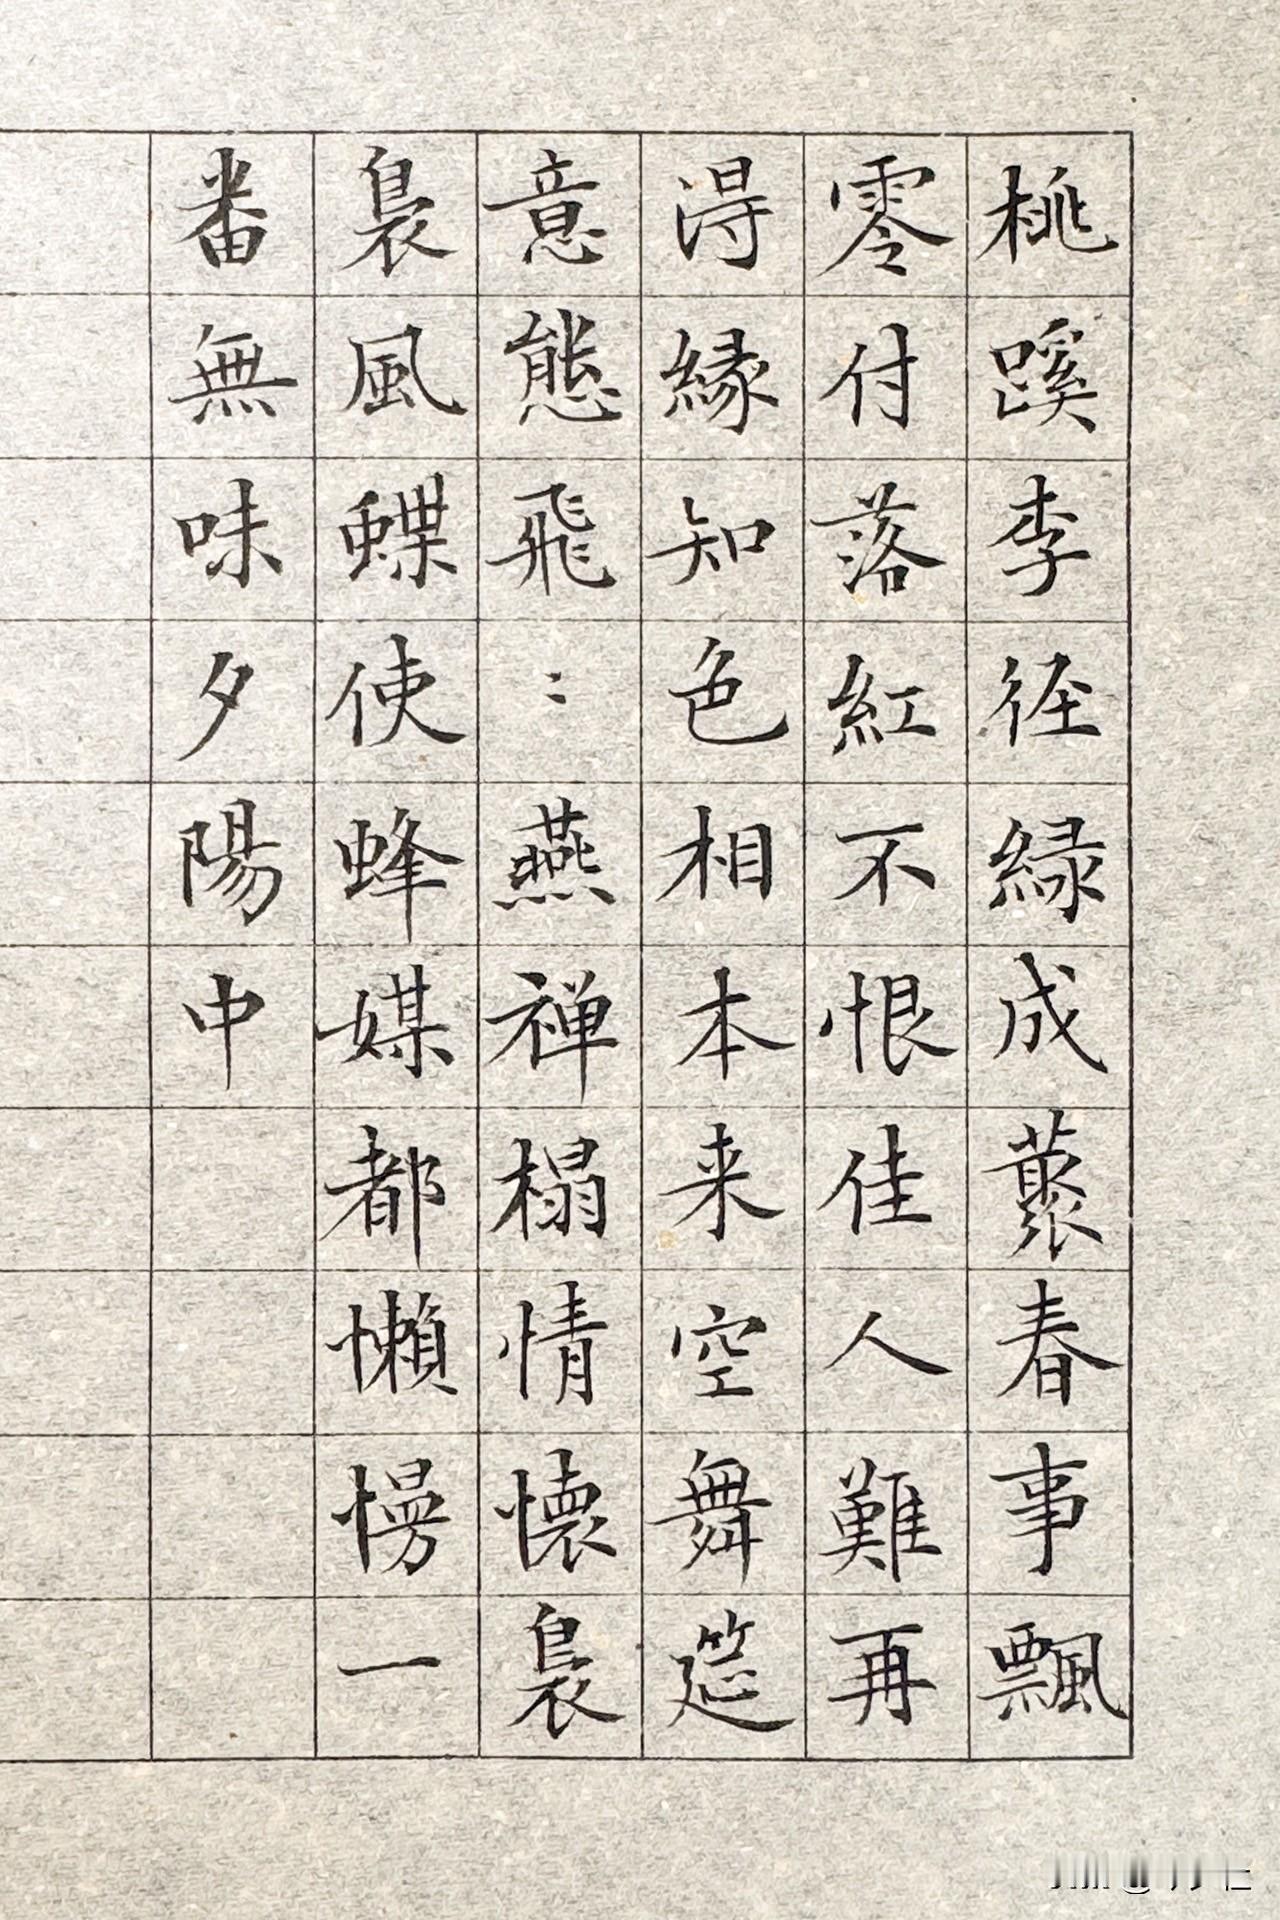 桃蹊李径緑成藂春事飄
零付落紅不恨佳人難再
淂縁知色相本来空舞筵
意態飛〻燕禅榻情懐裊
裊風蝶使蜂媒都懶慢一
番無味夕陽中